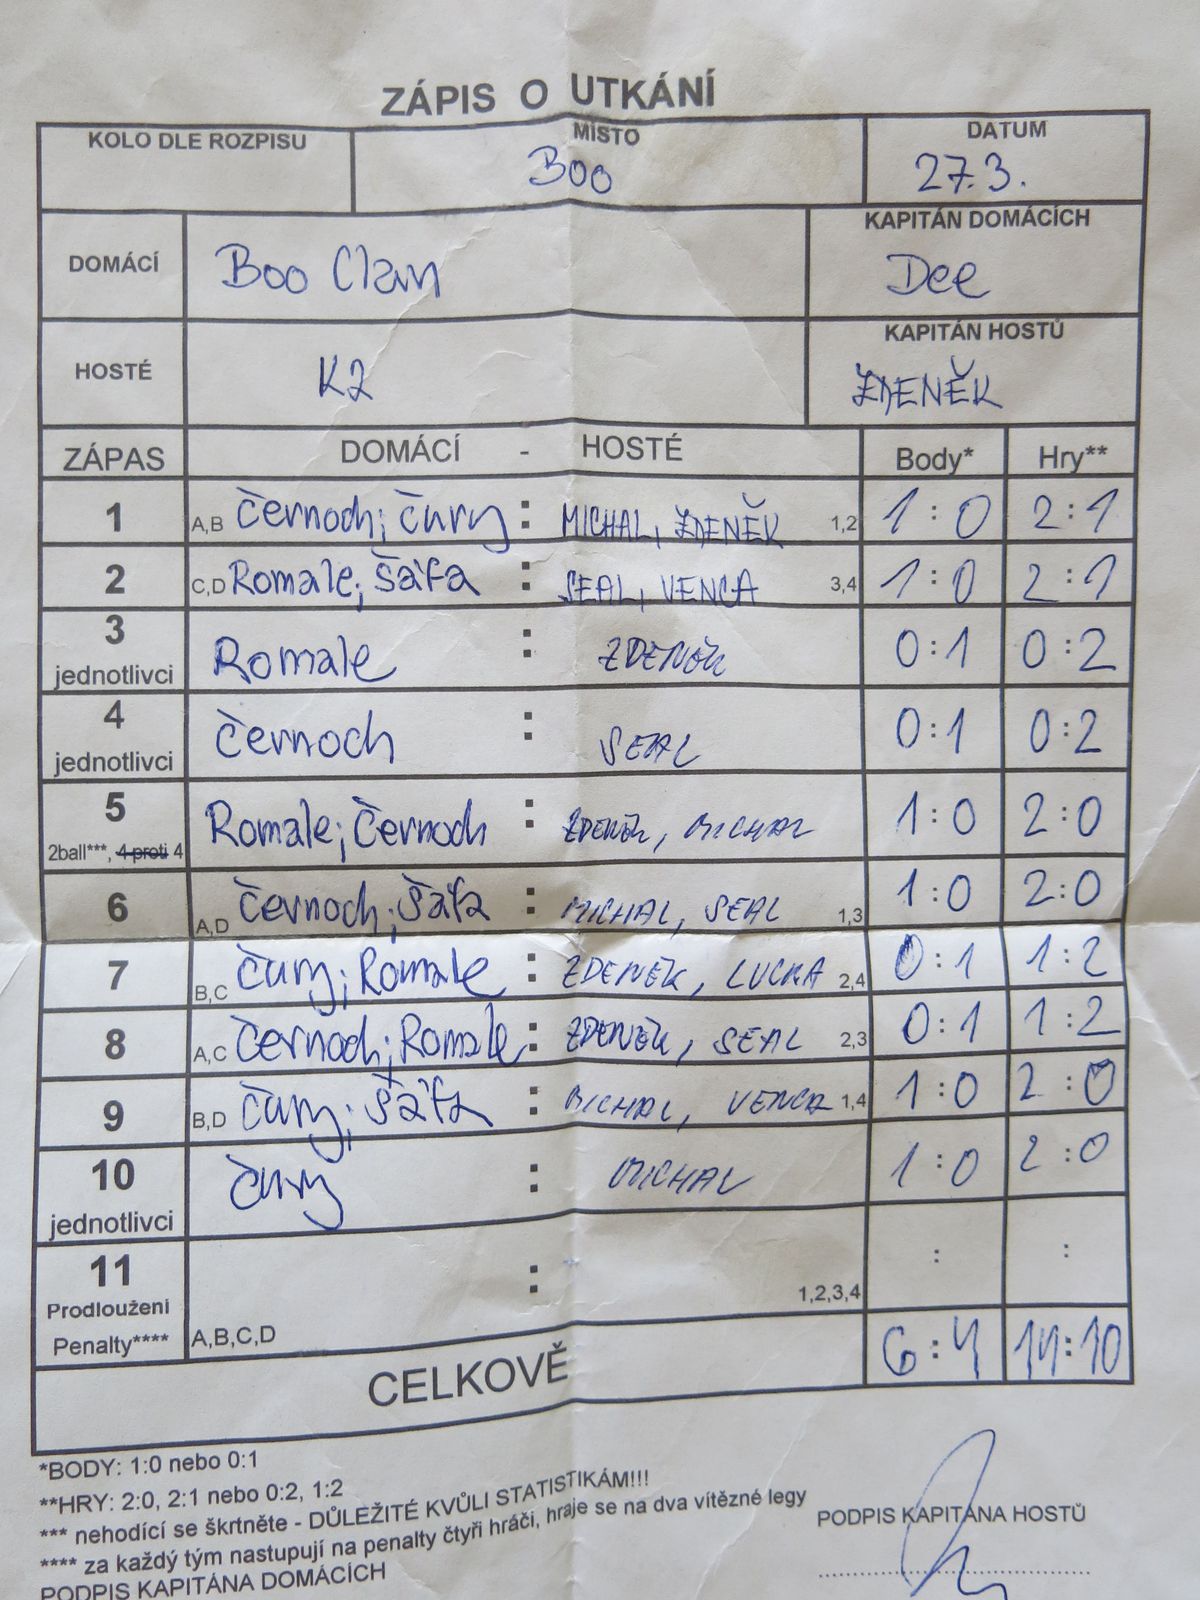 ZÁPIS O UTKÁNÍ
KOLO DLE ROZPISU MÍSTO DATUM
Boo 27.3.
DOMÁCÍ Boo Clan KAPITÁN DOMÁCÍCH
Dee
HOSTÉ K2 KAPITÁN HOSTŮ
ZDENĚK
ZÁPAS DOMÁCÍ - HOSTÉ Body* Hry**
1 A,B Černoch; Čury : MICHAL, ZDENĚK 1,2 1:0 2:1
2 C,D Romale; Šáfa : SEAL, VENCA 3,4 1:0 2:1
3 jednotlivci Romale : ZDENĚK 0:1 0:2
4 jednotlivci Černoch : SEAL 0:1 0:2
5 2ball***, 4 proti 4 Romale; Černoch : ZDENĚK, MICHAL 1:0 2:0
6 A,D Černoch; Šáfa : MICHAL, SEAL 1,3 1:0 2:0
7 B,C Čury; Romale : ZDENĚK, LUCKA 2,4 0:1 1:2
8 A,C Černoch; Romale : ZDENĚK, SEAL 2,3 0:1 1:2
9 B,D Čury; Šáfa : MICHAL, VENCA 1,4 1:0 2:0
10 jednotlivci Čury : MICHAL 1:0 2:0
11 : : :
Prodloužení 1,2,3,4
Penalty**** A,B,C,D
CELKOVĚ 6:4 14:10
*BODY: 1:0 nebo 0:1
**HRY: 2:0, 2:1 nebo 0:2, 1:2
*** nehodící se škrtněte - DŮLEŽITÉ KVŮLI STATISTIKÁM!!!
**** za každý tým nastupují na penalty čtyři hráči, hraje se na dva vítězné legy
PODPIS KAPITÁNA DOMÁCÍCH PODPIS KAPITÁNA HOSTŮ